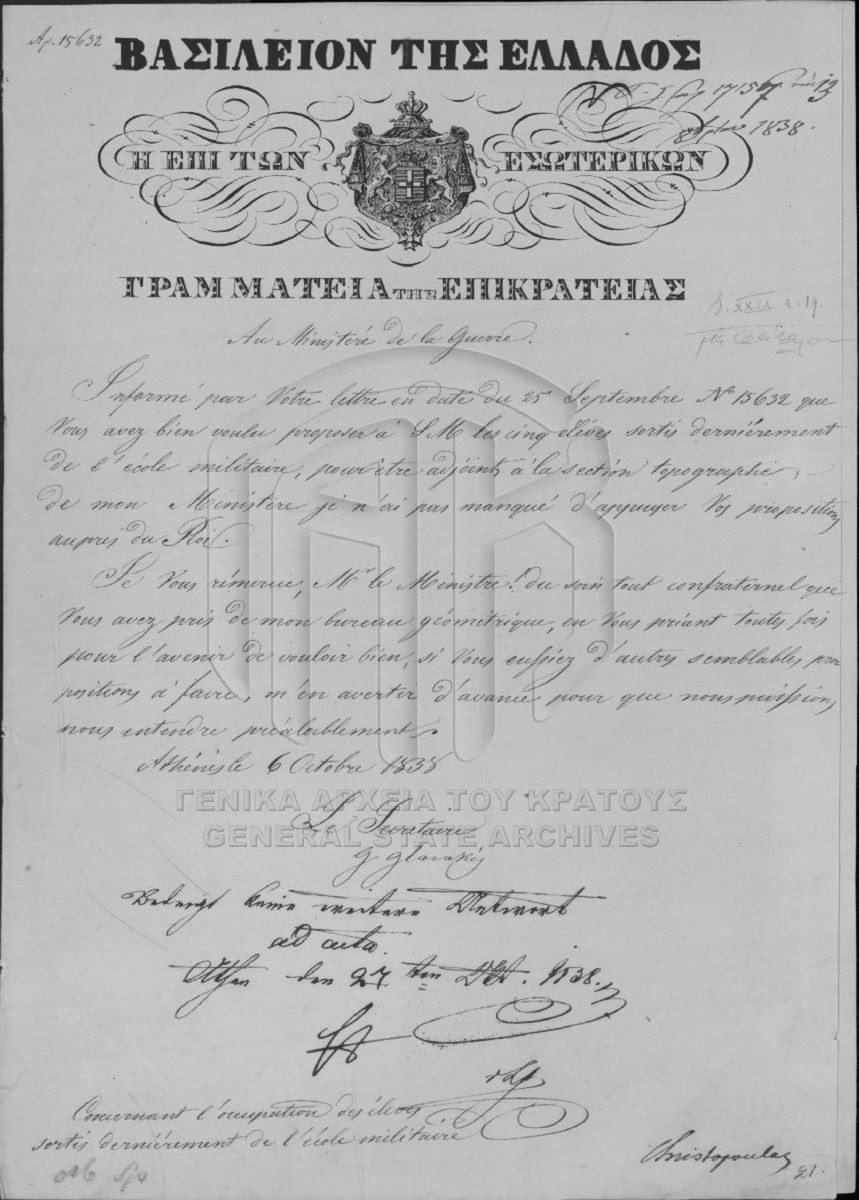 Αρ. 15632
ΒΑΣΙΛΕΙΟΝ ΤΗΣ ΕΛΛΑΔΟΣ
1838.
Η ΕΠΙ ΤΩΝ ΕΣΩΤΕΡΙΚΩΝ
ΓΡΑΜΜΑΤΕΙΑ ΤΗΣ ΕΠΙΚΡΑΤΕΙΑΣ
Au Ministére de la Guerre.
Informé par Votre lettre en date du 25 Septembre No 15632 que
Vous avez bien voulu proposer à S M les cinq élèves sortis derniérement
de l'école militaire, pour être adjoints à la section topographie
de mon Ministère je n'ai pas manqué d'appuyer Vos propositions
auprès du Roi.
Je Vous rémercie, Mr le Ministre! du soin tout confraternel que
Vous avez pris de mon bureau géométrique, en Vous priant toutes fois
pour l'avenir de vouloir bien, si Vous eussiez d'autres semblables pro
positions à faire, m'en avertir d'avance pour que nous puissions
nous entendre préalablement.
Athénes le 6 Octobre 1838
ΓΕΝΙΚΑ ΑΡΧΕΙΑ ΤΟΥ ΚΡΑΤΟΥΣ
GENERAL STATE ARCHIVES
Le Secretaire
G Glarakis
Bedarf keine weitere Antwort
ad acta.
Athen den 27 ten Okt. 1838.
Concernant l'occupation des élèves
sortis derniérement de l'école militaire
Christopoulos
21.